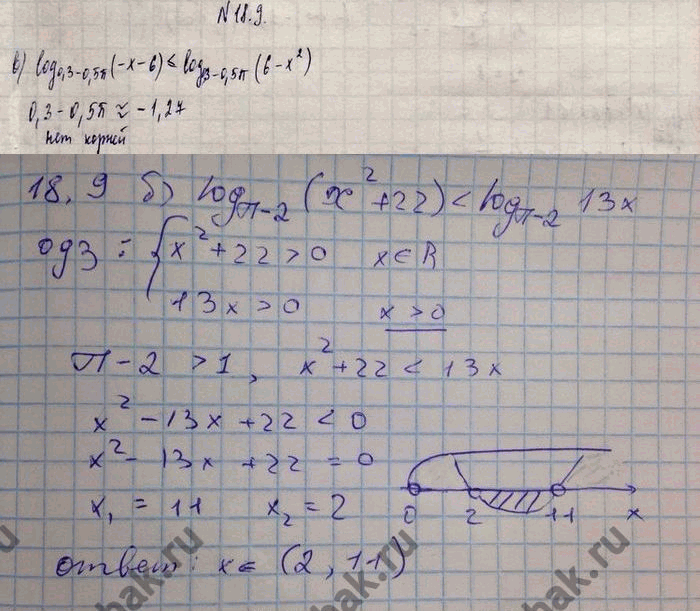 N 18.9.
в) log₀,₃₋₀,₅π(-x-6) ≤ log₀,₃₋₀,₅π(6-x²)
0,3-0,5π ≈ -1,27
нет корней
18,9 б) log π-2 (x²+22) < log π-2 13x
одз : { x²+22 > 0 x∈R
13x > 0 x > 0
π-2 >1, x²+22 < 13x
x²-13x+22 < 0
x²-13x+22 = 0
x₁ = 11 x₂ = 2
0 2 11 x
ответ: x∈ (2, 11)
bak.ru
bak.ru